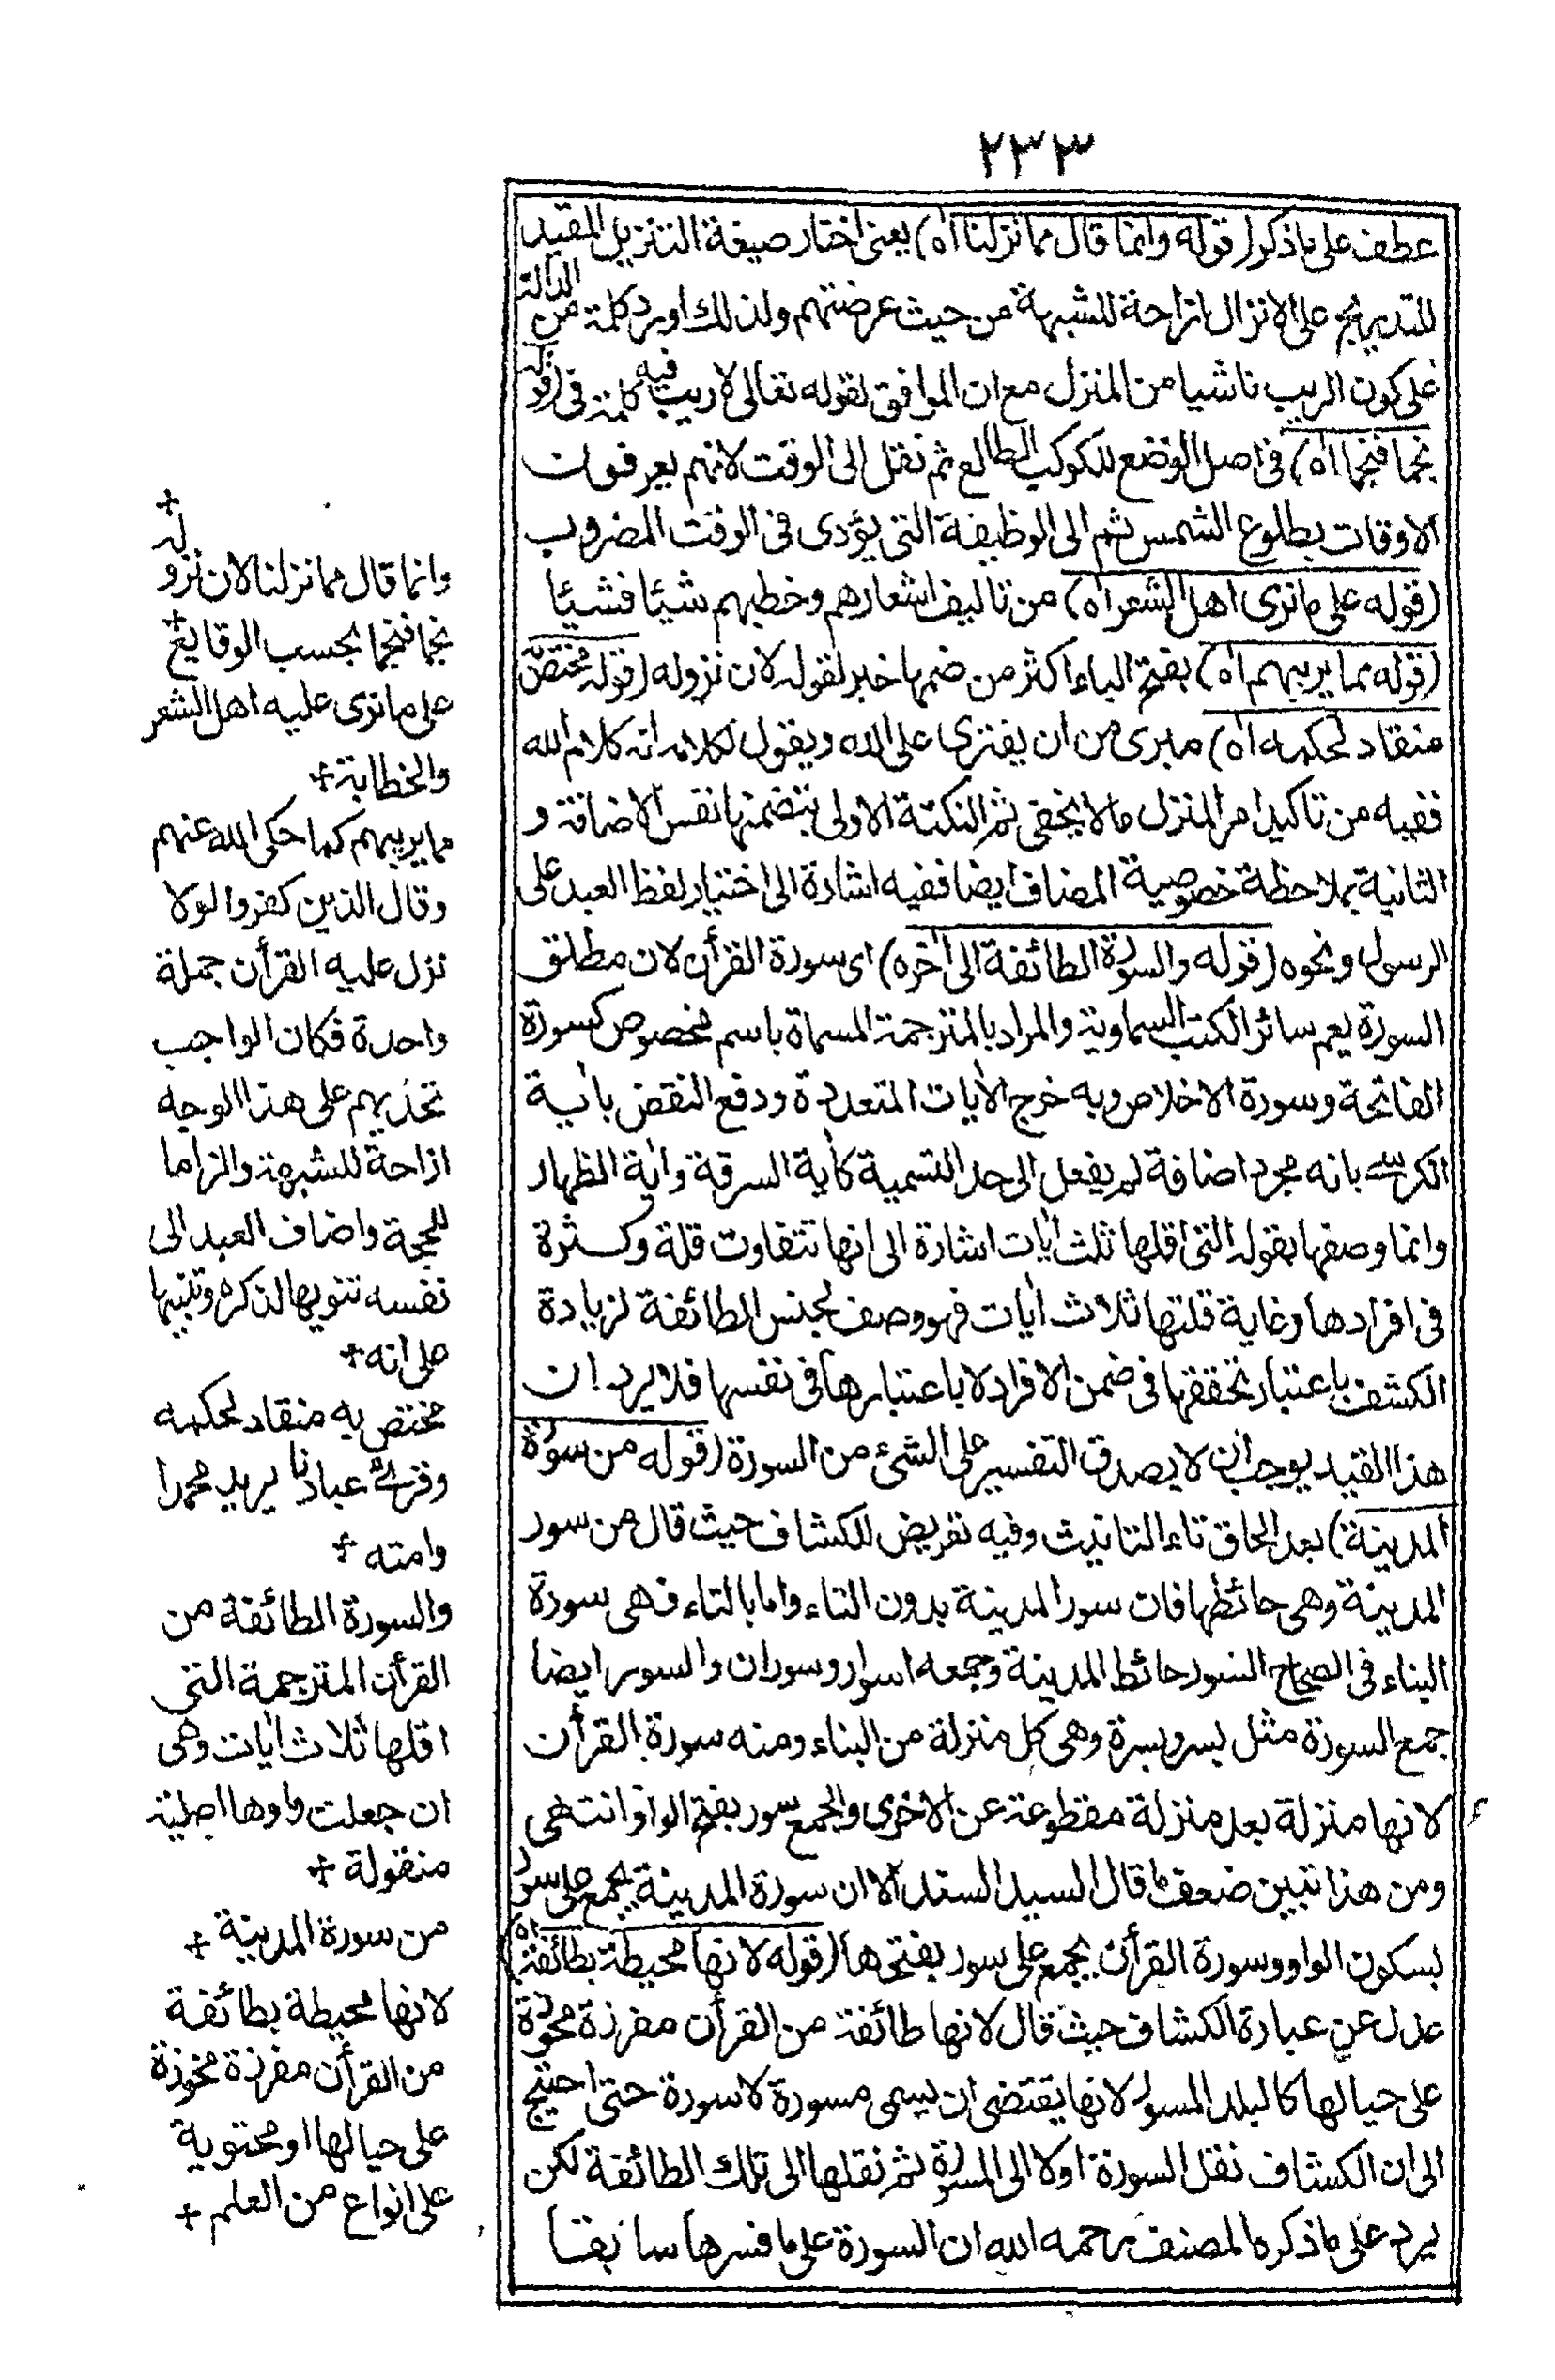 ٢٣٣
عطف على ما ذكر (قوله وانما قال مما نزلنا اه) يعنى اختار صيغة التنزيل المقيد
للتدريج على الانزال ازاحة للشبهة من حيث عرضتهم ولذلك اورد كلمة من الدالة
على كون الريب ناشيا من المنزل مع ان الموافق لقوله تعالى لا ريب فيه كلمة فى (قوله
نجما فنجما اه) فى اصل الوضع للكوكب الطالع ثم نقل الى الوقت لانهم يعرفون
الاوقات بطلوع الشمس ثم الى الوظيفة التى يؤدى فى الوقت المضروب
(قوله على ما نرى اهل الشعر اه) من تاليف اشعارهم وخطبهم شيئا فشيئا
(قوله مما يريبهم اه) بفتح الياء اكثر من ضمها خبر لقوله لان نزوله (قوله مختص به
منقاد لحكمه اه) مبرى من ان يفترى على الله ويقول لكلامه انه كلام الله
ففيه من تاكيد امر المنزل ما لا يخفى ثم النكتة الاولى يتضمنها نفس الاضافة و
الثانية بملاحظة خصوصية المضاف ايضا ففيه اشارة الى اختيار لفظ العبد على
الرسول ونحوه (قوله والسورة الطائفة الى اخره) اى سورة القرأن لان مطلق
السورة يعم سائر الكتب السماوية والمراد بالمترجمة المسماة باسم مخصوص كسورة
الفاتحة وسورة الاخلاص وبه خرج الأيات المتعددة ودفع النقض بأية
الكرسى بانه مجرد اضافة لم يفعل الى حد التسمية كأية السرقة وأية الظهار
وانما وصفها بقوله التى اقلها ثلث أيات اشارة الى انها تتفاوت قلة وكثرة
فى افرادها وغاية قلتها ثلاث أيات فهو وصف لجنس الطائفة لزيادة
الكشف باعتبار تحققها فى ضمن الافراد لا باعتبارها فى نفسها فلا يرد ان
هذا القيد يوجب ان لا يصدق التفسير على الشئ من السورة (قوله من سورة
المدينة) بعد الحاق تاء التانيث وفيه تعريض للكشاف حيث قال من سور
المدينة وهى حائطها فان سور المدينة بدون التاء واما بالتاء فهى سورة
البناء فى الصحاح السور حائط المدينة وجمعه اسوار وسوران والسور ايضا
جمع السورة مثل بسر وبسرة وهى كل منزلة من البناء ومنه سورة القرأن
لانها منزلة بعد منزلة مقطوعة عن الاخرى والجمع سور بفتح الواو انتهى
ومن هذا تبين ضعف ما قال السيد السند الا ان سورة المدينة يجمع على سور
بسكون الواو وسورة القرأن يجمع على سور بفتحها (قوله لانها محيطة بطائفة اه)
عدل عن عبارة الكشاف حيث قال لانها طائفة من القرأن مفرزة محوزة
على حيالها كالبلد المسور لانها يقتضى ان يسمى مسورة لا سورة حتى احتيج
الى ان الكشاف نقل السورة اولا الى المسورة ثم نقلها الى تلك الطائفة لكن
يرد على ما ذكره المصنف رحمه الله ان السورة على ما فسرها سابقا
+
وانما قال مما نزلنا لان نزوله
نجما فنجما بحسب الوقايع +
على ما نرى عليه اهل الشعر
والخطابة +
مما يريبهم كما حكى الله عنهم
وقال الذين كفروا لولا
نزل عليه القرأن جملة
واحدة فكان الواجب
تحديهم على هذا الوجه
ازاحة للشبهة والزاما
للحجة واضاف العبد الى
نفسه تنويها لذكره وتنبيها
على انه +
مختص به منقاد لحكمه
وقرئ عبادنا يريد محمدا
وامته +
والسورة الطائفة من
القرأن المترجمة التى
اقلها ثلاث أيات وهى
ان جعلت واوها اصلية
منقولة +
من سورة المدينة +
لانها محيطة بطائفة
من القرأن مفرزة محوزة
على حيالها او محتوية
على انواع من العلم +